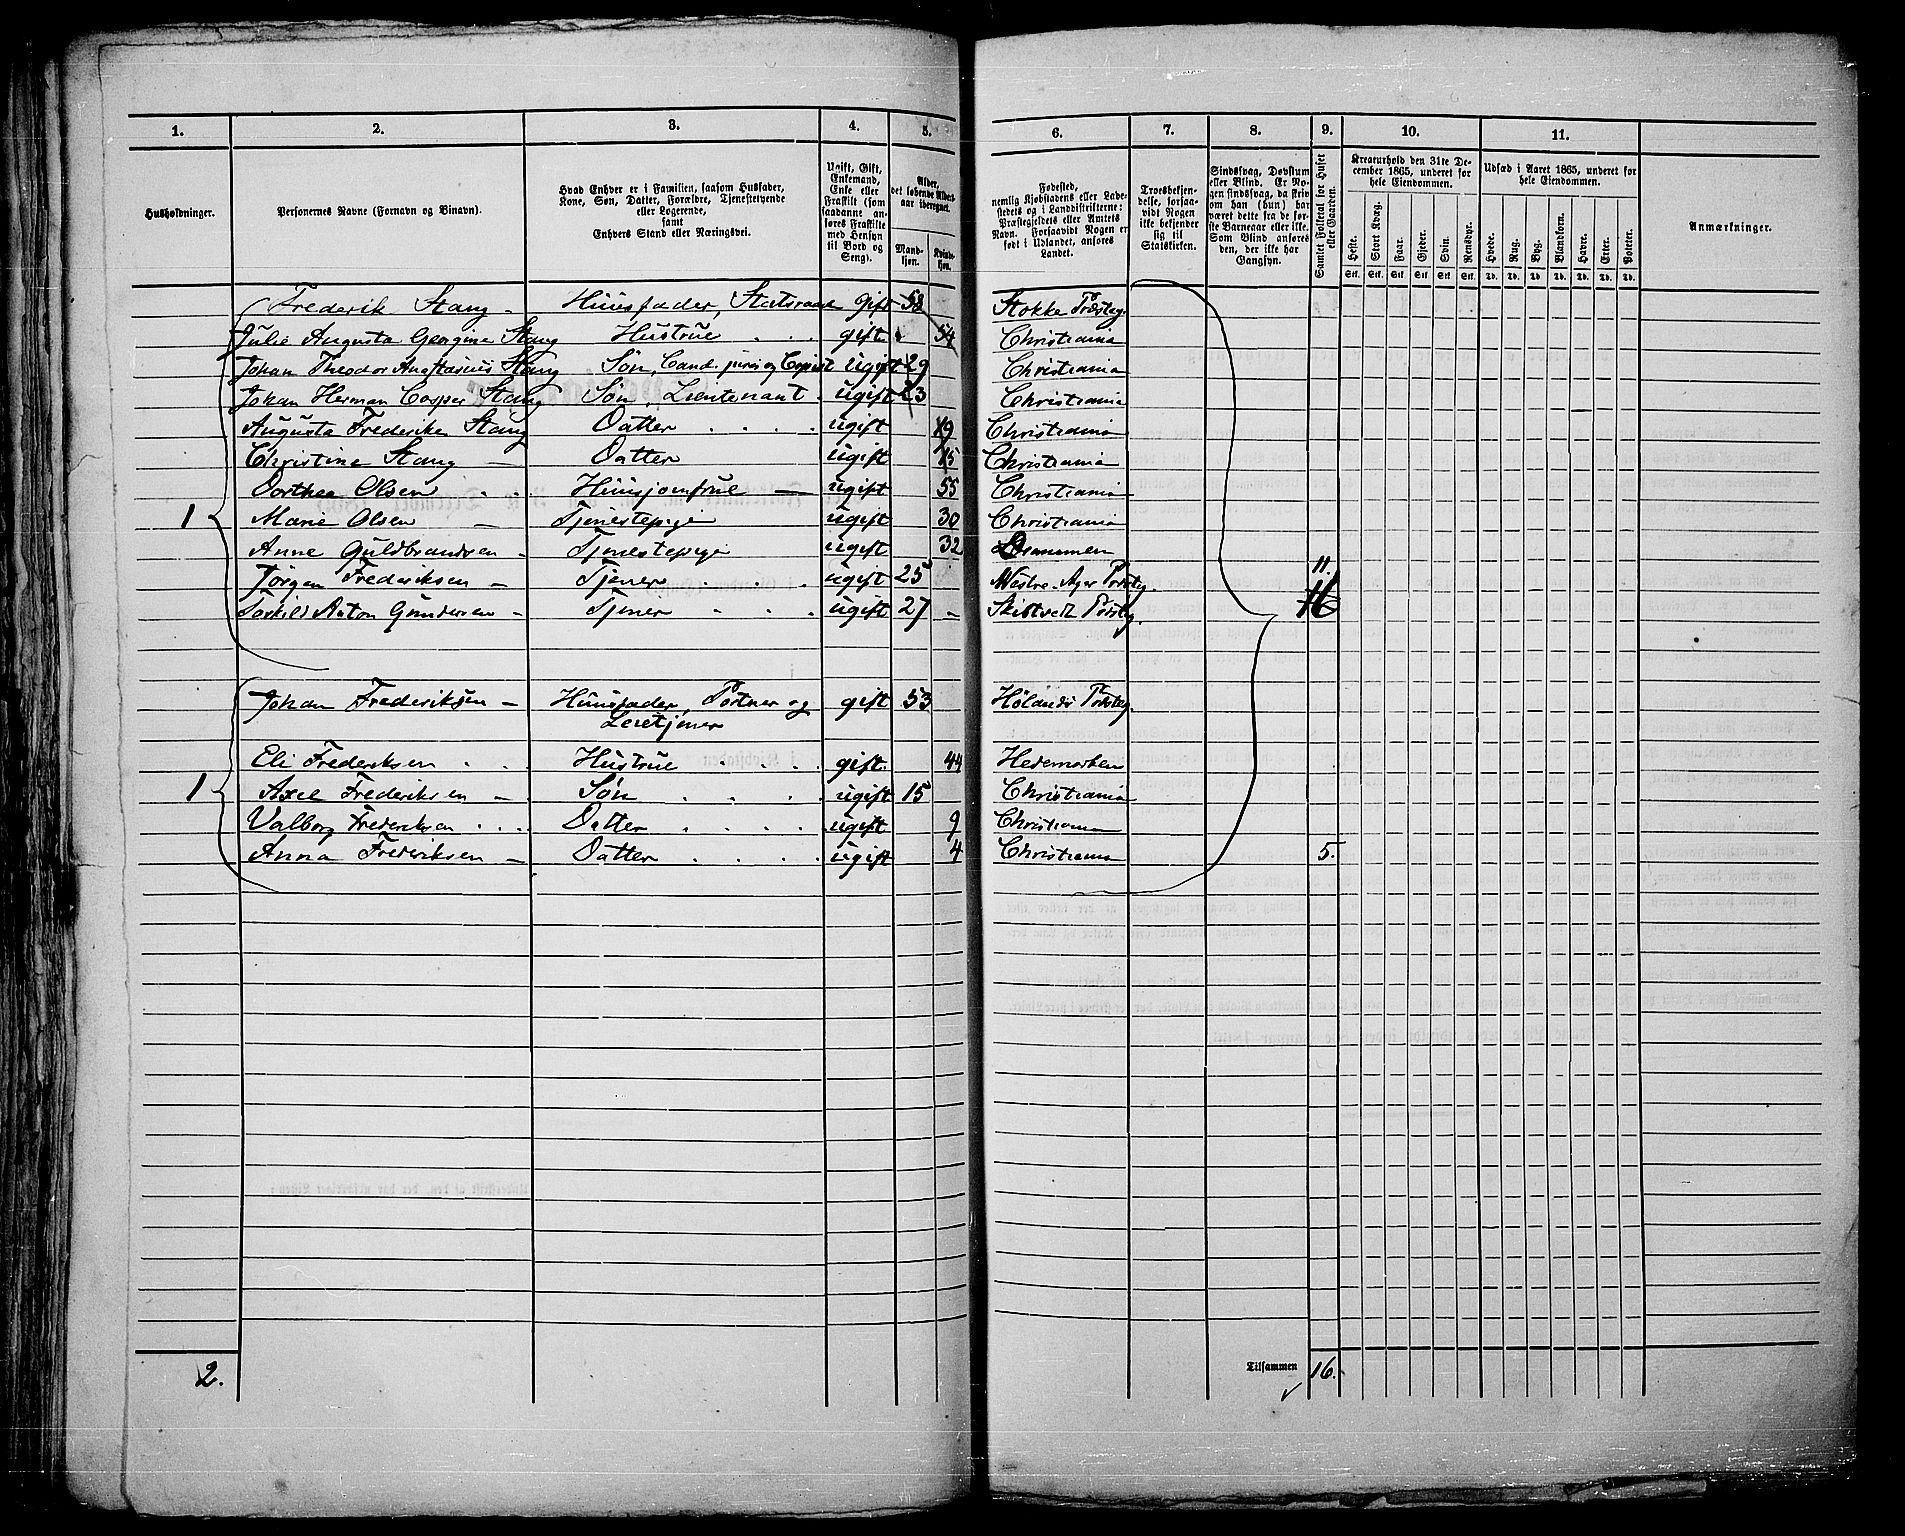 1. 2. 3. 4. 5. 6. 7. 8. 9. 10. 11.
Husholdninger.
Personernes Navne (Fornavn og Binavn).
Hvad Enhver er i Familien, saasom Husfader,
Kone, Søn, Datter, Forældre, Tjenestetyende
eller Logerende,
samt
Enhvers Stand eller Næringsvei.
Ugift, Gift,
Enkemand,
Enke eller
Fraskilt (som
saadanne an-
føres Fraskilte
med Hensyn
til Bord og
Seng).
Alder,
det løbende Alders-
aar iberegnet.
Mand-
kjøn.
Kvinde-
kjøn.
Fødested,
nemlig Kjøbstadens eller Lade-
stedets og i Landdistrikterne:
Præstegjeldets eller Amtets
Navn. Forsaavidt Nogen er
født i Udlandet, anføres
Landet.
Troesbekjen-
delse, forsaa-
vidt Nogen
ikke bekjender
sig til
Statskirken.
Sindssvag, Døvstum
eller Blind. Er No-
gen sindssvag, da skriv
om han (hun) har
været dette fra de før-
ste Barneaar eller ikke.
Som Blind ansøres
den, der ikke har
Gangsyn.
Samlet Folketal for Huset
eller Gaarden.
Kreaturhold den 31te De-
cember 1865, underet for
hele Eiendommen.
Heste. Stort Kvæg. Faar. Gjeder. Svin. Rensdyr.
Stk. Stk. Stk. Stk. Stk. Stk.
Udsæd i Aaret 1865, underet for
hele Eiendommen.
Hvede. Rug. Byg. Blandkorn. Havre. Erter. Poteter.
Td. Td. Td. Td. Td. Td. Td.
Anmærkninger.
Frederik Stang - Huusfader, Statsraad gift 58 Stokke Præsteg.
Julie Augusta Georgine Stang Hustrue gift 54 Christiania
Johan Theodor Anastasius Stang Søn, Cand. juris og Copist ugift 29 Christiania
Johan Herman Casper Stang Søn, Lieutenant ugift 23 Christiania
Augusta Frederike Stang Datter ugift 19 Christiania
Christine Stang - Datter ugift 15 Christiania
Dorthea Olsen Huusjomfrue - ugift 55 Christiania
1 Marie Olsen - Tjenestepige ugift 30 Christiania
Anne Guldbrandsen - Tjenestepige ugift 32 Drammen
Jørgen Frederiksen - Tjener ugift 25 Westre-Aker Præsteg. 11.
Torkild Anton Gundersen - Tjener ugift 27 - Skibtvedt Præsteg. 16
Johan Frederiksen - Huusfader, Portner og gift 53 Hølands Præsteg.
Leietjener
Eli Frederiksen Hustrue gift. 44 Hedemarken
1 Axel Frederiksen - Søn ugift 15 Christiania
Valborg Frederiksen Datter ugift 9 Christiania
Anna Frederiksen - Datter ugift 4 Christiania 5.
2. Tilsammen 16.